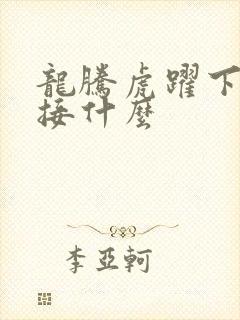 龍騰虎躍下
接什麼
李亞軻